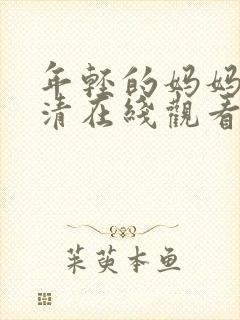 年輕的妈妈
清在綫觀看
茱萸本鱼